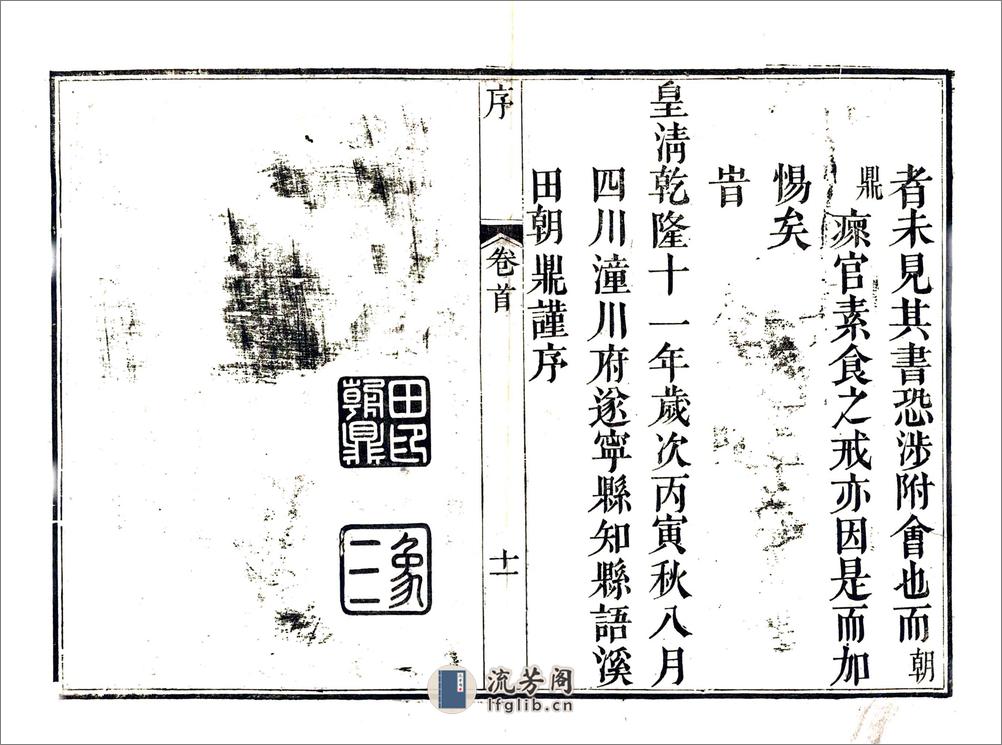 者未見其書恐涉附會也而朝
鼎瘝官素食之戒亦因是而加
惕矣
旹
皇淸乾隆十一年歲次丙寅秋八月
四川潼川府遂寧縣知縣語溪
田朝鼎謹序
序
卷首
十一
田印
朝鼎
象
三
流芳阁
lfglib.cn